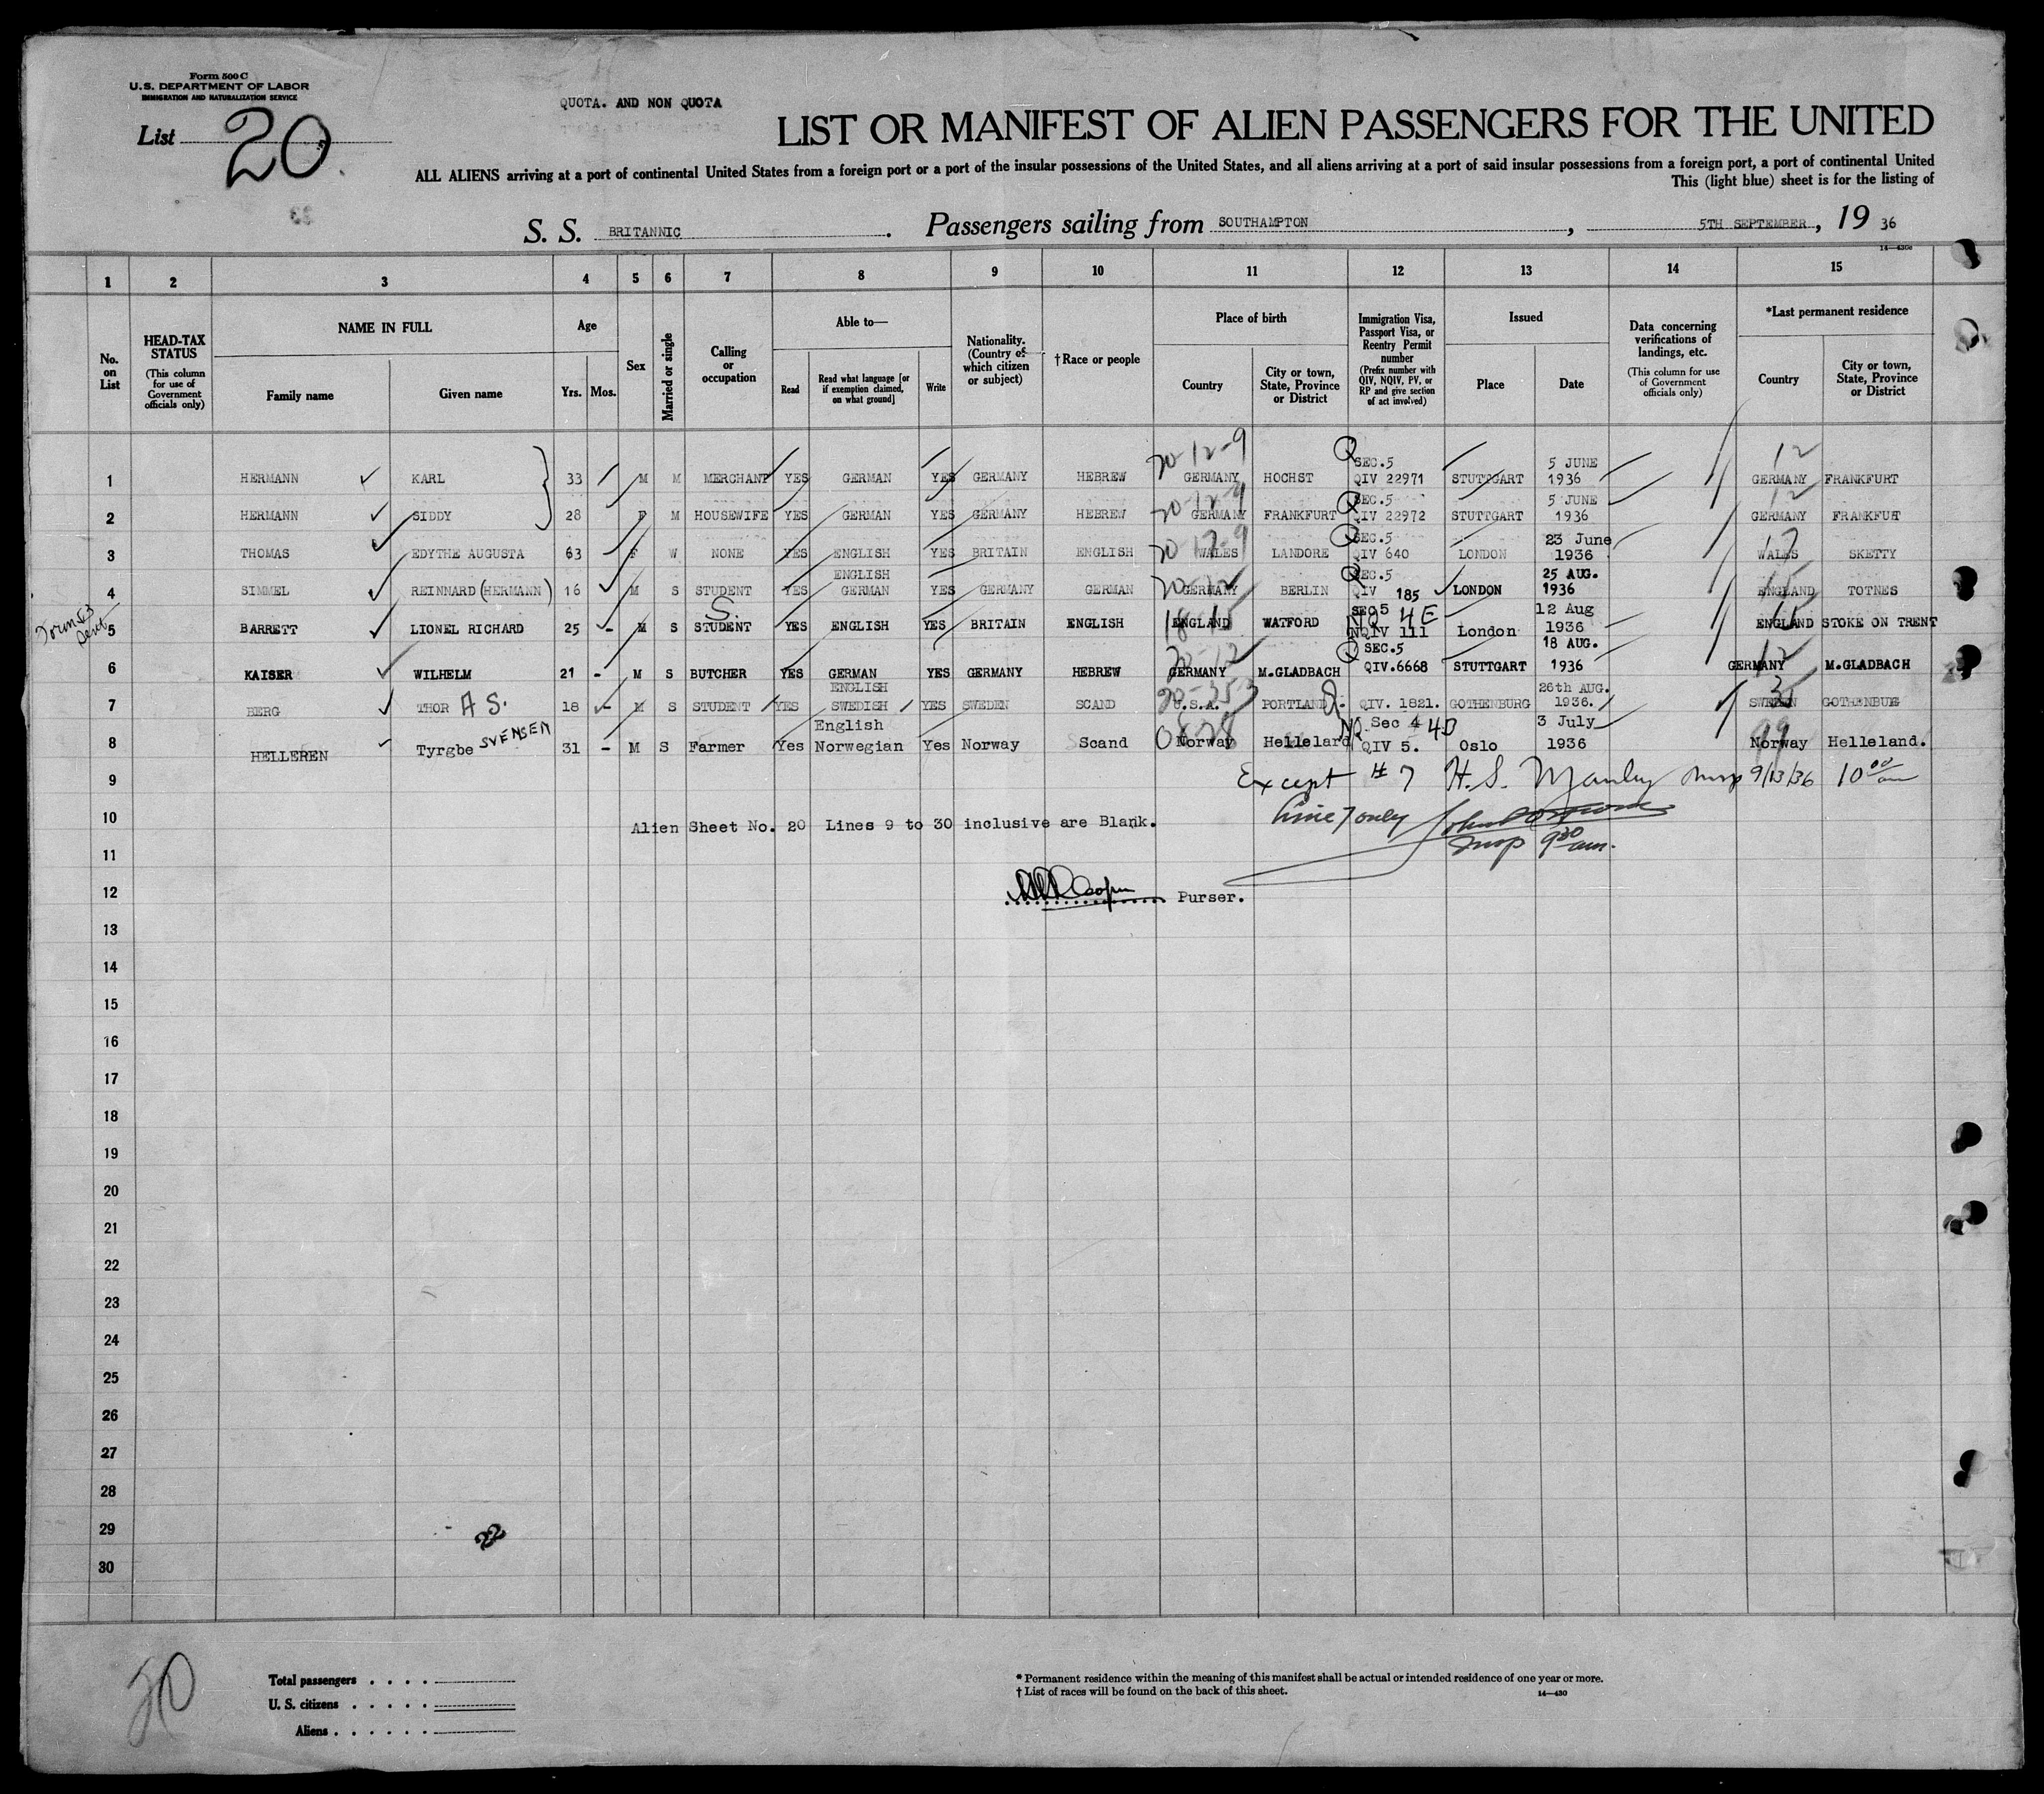 Form 500 C
U.S. DEPARTMENT OF LABOR
IMMIGRATION AND NATURALIZATION SERVICE
List 20.
QUOTA. AND NON QUOTA
LIST OR MANIFEST OF ALIEN PASSENGERS FOR THE UNITED
ALL ALIENS arriving at a port of continental United States from a foreign port or a port of the insular possessions of the United States, and all aliens arriving at a port of said insular possessions from a foreign port, a port of continental United
This (light blue) sheet is for the listing of
S. S. BRITANNIC. Passengers sailing from SOUTHAMPTON, 5TH SEPTEMBER, 19 36
14—430a
1 2 3 4 5 6 7 8 9 10 11 12 13 14 15
No. on List
HEAD-TAX STATUS (This column for use of Government officials only)
NAME IN FULL
Family name Given name
Age
Yrs. Mos.
Sex
Married or single
Calling or occupation
Able to—
Read
Read what language [or if exemption claimed, on what ground]
Write
Nationality. (Country of which citizen or subject)
†Race or people
Place of birth
Country
City or town, State, Province or District
Immigration Visa, Passport Visa, or Reentry Permit number (Prefix number with QIV, NQIV, PV, or RP and give section of act involved)
Issued
Place Date
Data concerning verifications of landings, etc. (This column for use of Government officials only)
*Last permanent residence
Country
City or town, State, Province or District
20-12-9 Q SEC.5 5 JUNE 12
1 HERMANN KARL 33 M M MERCHANT YES GERMAN YES GERMANY HEBREW GERMANY HOCHST QIV 22971 STUTTGART 1936 GERMANY FRANKFURT
20-12-9 Q SEC.5 5 JUNE 12
2 HERMANN SIDDY 28 F M HOUSEWIFE YES GERMAN YES GERMANY HEBREW GERMANY FRANKFURT QIV 22972 STUTTGART 1936 GERMANY FRANKFUT
Q SEC.5 23 June
3 THOMAS EDYTHE AUGUSTA 63 F W NONE YES ENGLISH YES BRITAIN ENGLISH WALES LANDORE QIV 640 LONDON 1936 WALES SKETTY
ENGLISH 20-12 Q SEC.5 25 AUG. 15
4 SIMMEL REINNARD (HERMANN) 16 M S STUDENT YES GERMAN YES GERMANY GERMAN GERMANY BERLIN QIV 185 LONDON 1936 ENGLAND TOTNES
S. 18-15 SEC 5 NQ 4E 12 Aug 15
5 BARRETT LIONEL RICHARD 25 - M S STUDENT YES ENGLISH YES BRITAIN ENGLISH ENGLAND WATFORD NQIV 111 London 1936 ENGLAND STOKE ON TRENT
20-12 Q SEC.5 18 AUG. 12
6 KAISER WILHELM 21 - M S BUTCHER YES GERMAN YES GERMANY HEBREW GERMANY M.GLADBACH QIV.6668 STUTTGART 1936 GERMANY M.GLADBACH
ENGLISH 26th AUG.
7 BERG THOR A S. 18 - M S STUDENT YES SWEDISH YES SWEDEN SCAND U.S.A. PORTLAND QIV. 1821. GOTHENBURG 1936. SWEDEN GOTHENBUG
English NQ Sec 4 4D 3 July 99
8 HELLEREN Tyrgbe SVENSEN 31 - M S Farmer Yes Norwegian Yes Norway Scand Norway Helleland QIV 5. Oslo 1936 Norway Helleland.
9 Except # 7 H. S. Manley Insp 9/13/36 10 00 am
10 Alien Sheet No. 20 Lines 9 to 30 inclusive are Blank. Line 7 only
11 Insp 9 30 am.
12 Purser.
13
14
15
16
17
18
19
20
21
22
23
24
25
26
27
28
29 22
30
20
Total passengers . . . .
U. S. citizens . . . . .
Aliens . . . . . .
* Permanent residence within the meaning of this manifest shall be actual or intended residence of one year or more.
† List of races will be found on the back of this sheet.
14—430